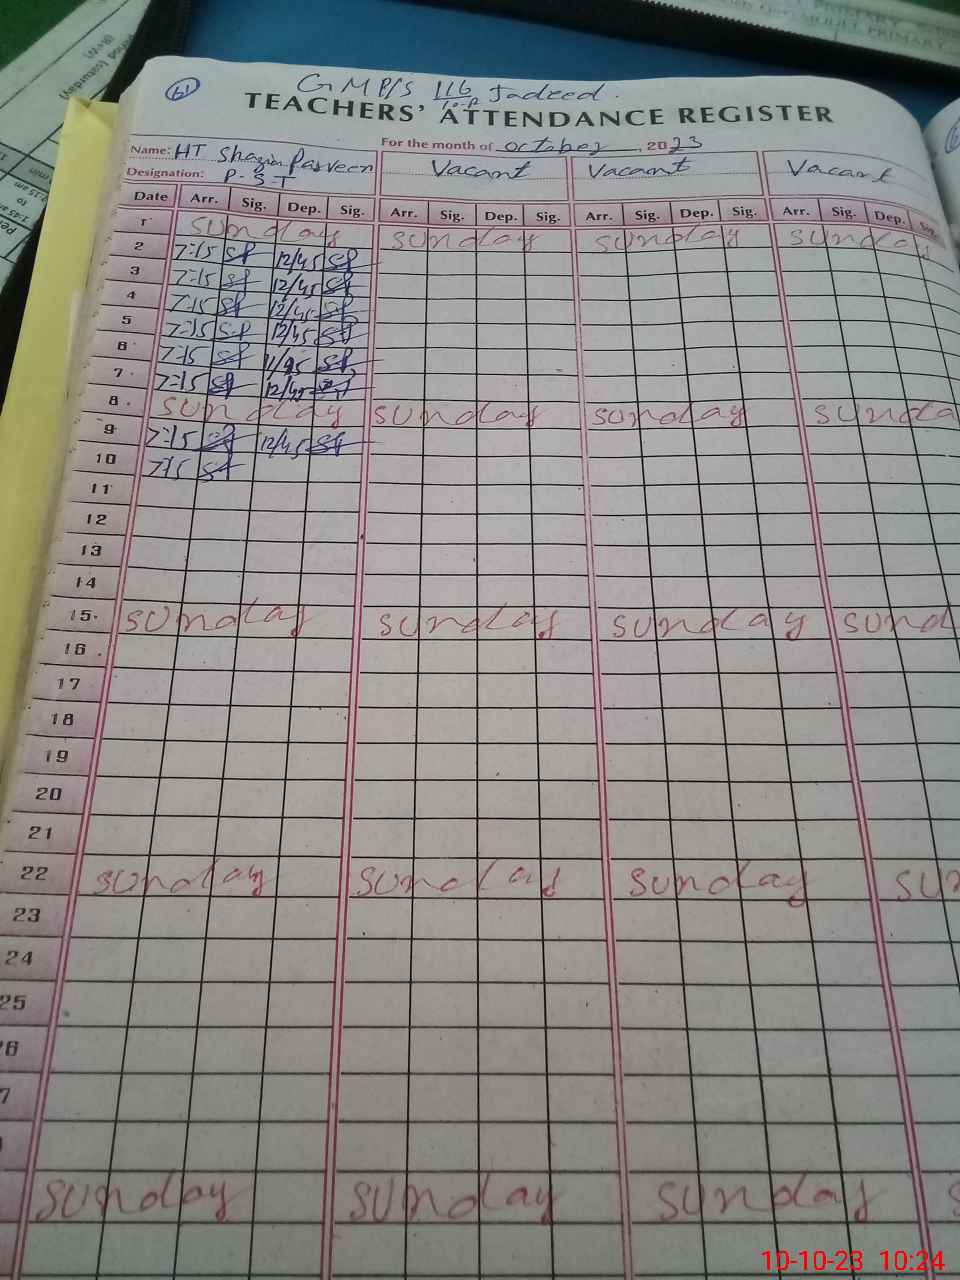 PRIMARY
MODEL PRIMARY
61
GMP/S 116 Jadeed.
10-R
TEACHERS' ATTENDANCE REGISTER
For the month of october, 2023
Name: HT Shazia Parveen Vacant Vacant Vacant
Designation: P.S.T
Date Arr. Sig. Dep. Sig. Arr. Sig. Dep. Sig. Arr. Sig. Dep. Sig. Arr. Sig. Dep. Sig.
1 sunday sunday sunday sunday
2 7:15 SP 12/45 SP
3 7:15 SP 12/45 SP
4 7:15 SP 12/45 SP
5 7:15 SP 12/45 SP
6 7:15 SP 11/45 SP
7 7:15 SP 12/45 SP
8 sunday sunday sunday sunda
9 7:15 SP 12/45 SP
10 7:15 SP
11
12
13
14
15 sunday sunday sunday sund
16
17
18
19
20
21
22 sunday sunday sunday sun
23
24
25
26
7
sunday sunday sunday s
10-10-23 10:24